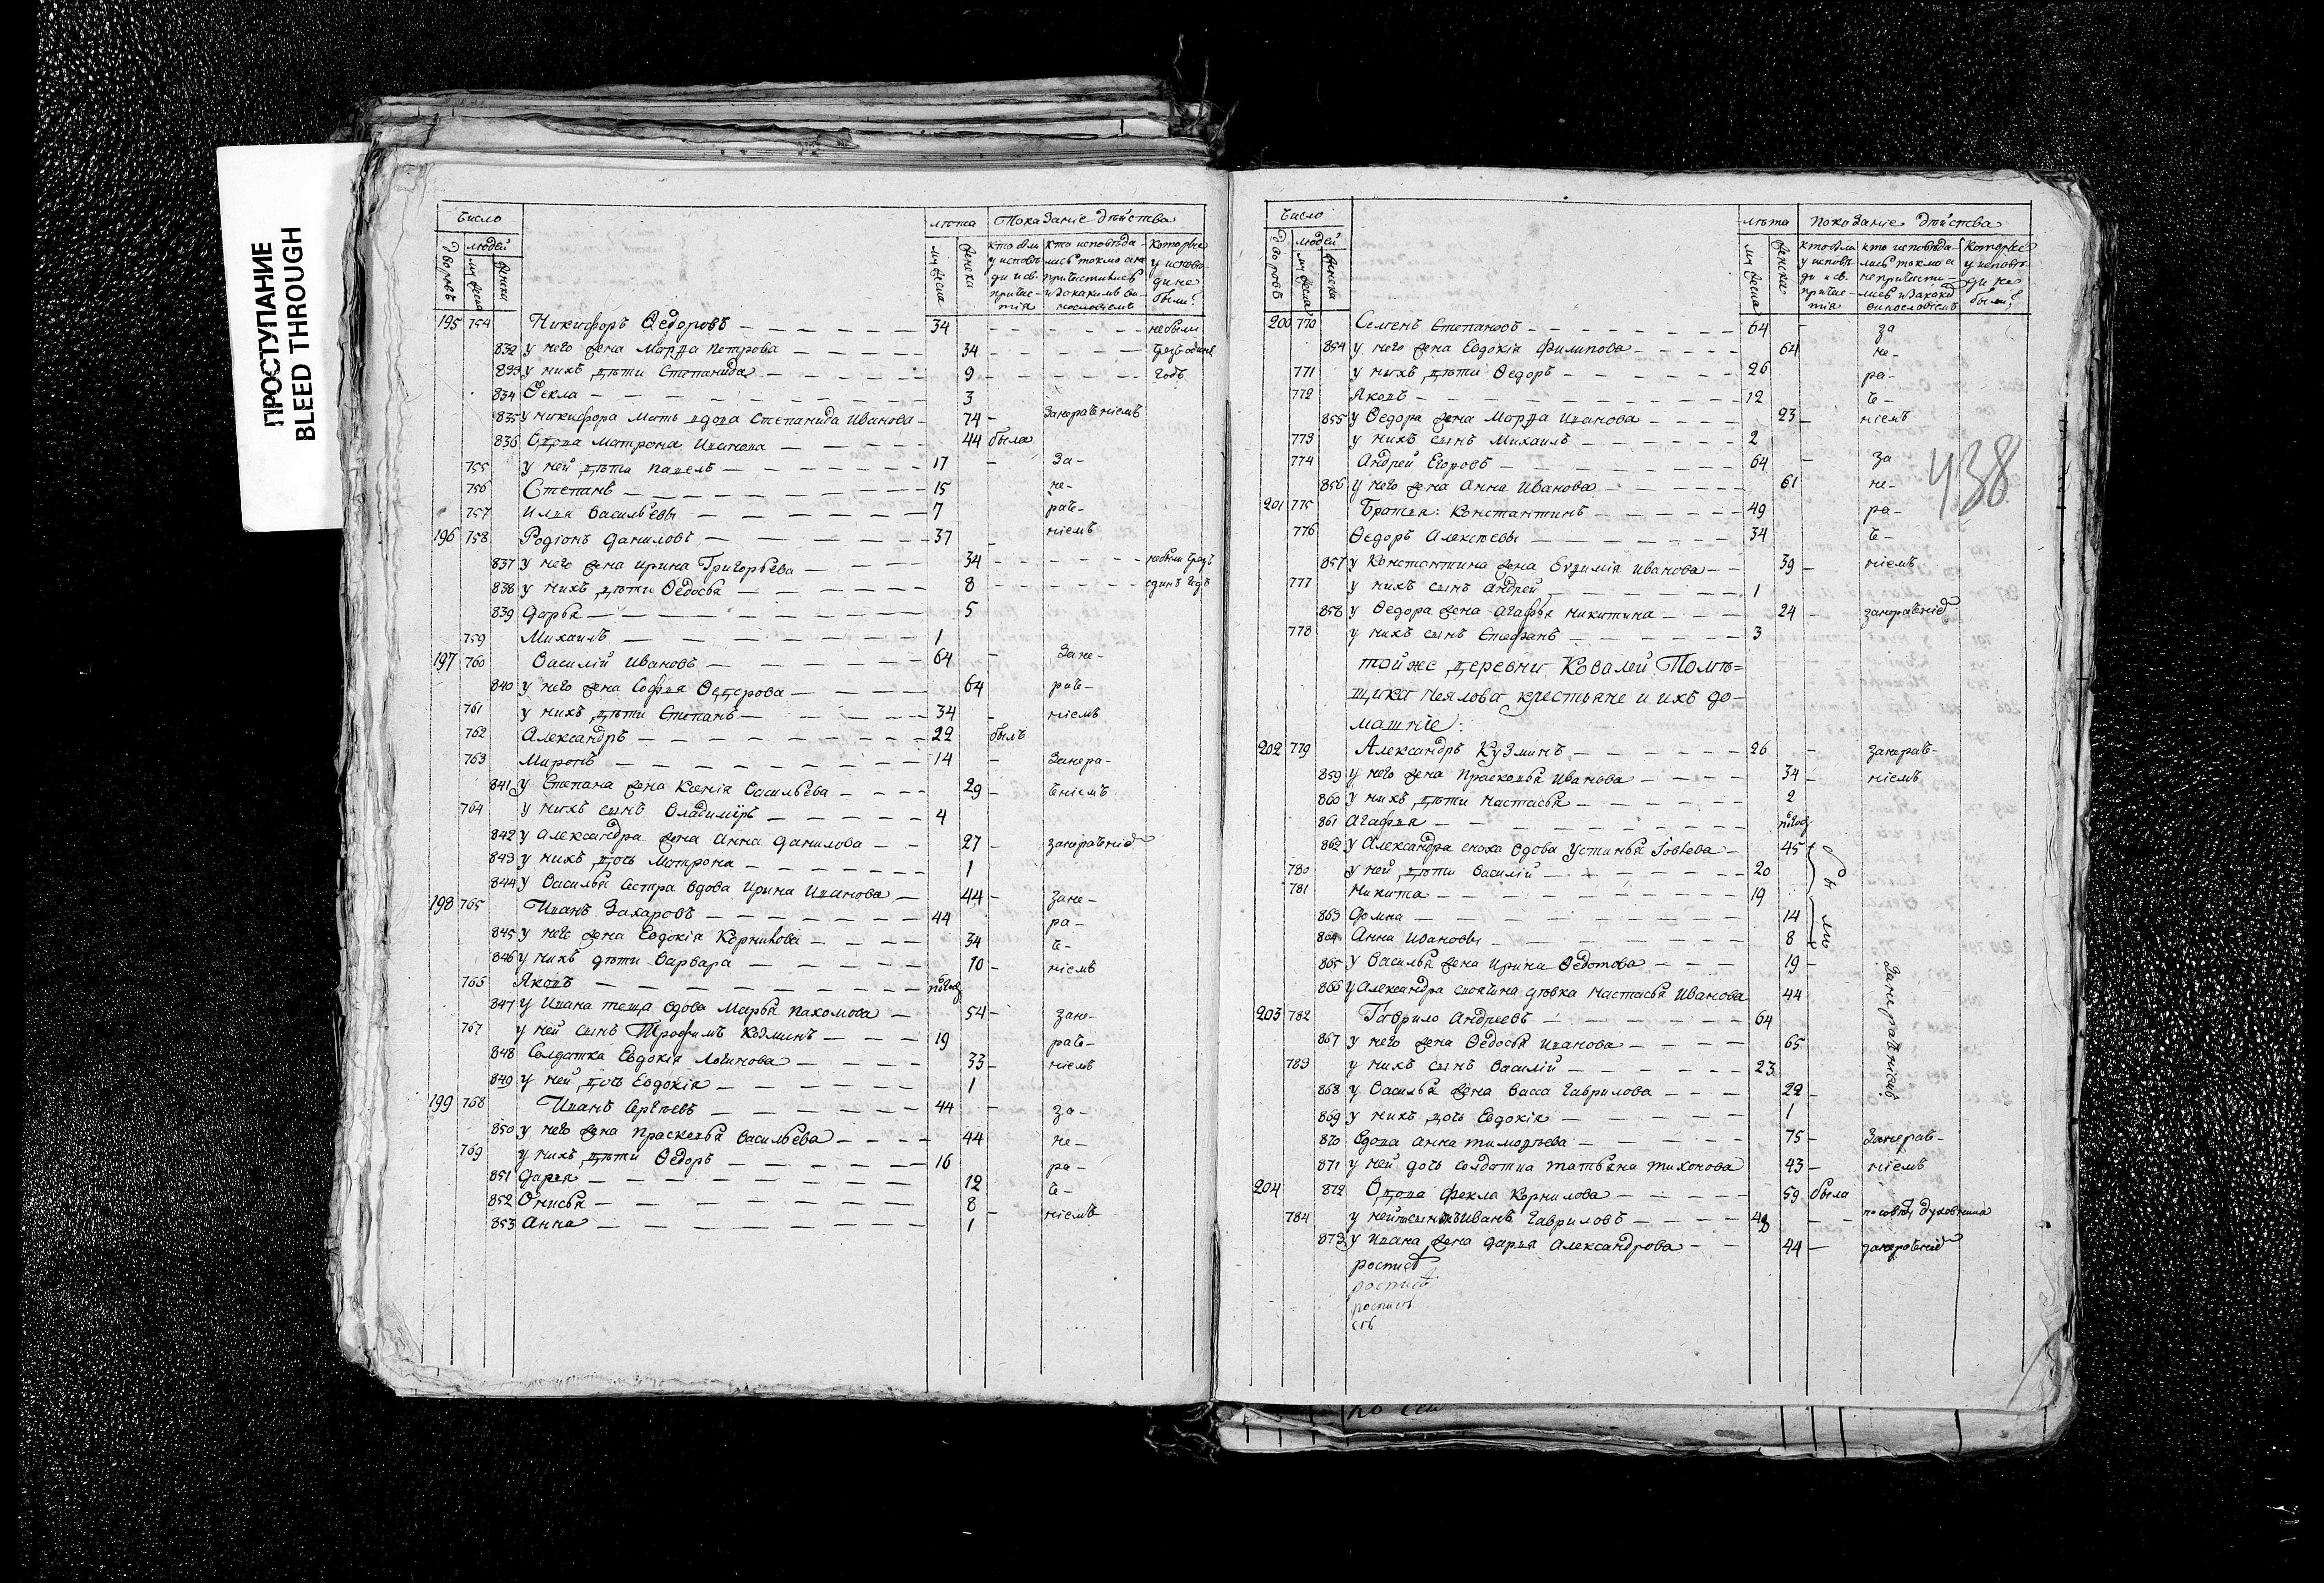 ПРОСТУПАНИЕ
BLEED THROUGH
Число
лѣта Показаніе дѣйства
Дворовъ людей
мужеска женска
мужеска женска
кто были у исповѣди и св. причастія
кто исповѣдались токмо а не причастились и за какимъ винословіемъ
которые у исповѣди не были
195 754 Никифоръ Ѳедоровъ 34 небыли
832 у него жена Марѳа Петрова 34 чрезъ одинъ
833 у нихъ дѣти Степанида 9 годъ
834 Ѳекла 3
835 у никифора мать вдова Степанида Иванова 74 занераченіемъ
836 Вдова матрона Иванова 44 была
755 у ней дѣти павелъ 17 за-
756 Степанъ 15 не-
757 илья Васильевы 7 рач-
196 758 Родіонъ Даниловъ 37 ніемъ
837 у него жена ирина Григорьева 34 небыли чрезъ
838 у нихъ дѣти Ѳедосья 8 одинъ годъ
839 Дарья 5
759 Михаилъ 1
197 760 Василій Ивановъ 64 Зане-
840 у него жена Софья Ѳедорова 64 раче-
761 у нихъ дѣти Степанъ 34 ніемъ
762 Александръ 22 былъ
763 Миронъ 14 Занера-
841 у Степана жена Ксенія Васильева 29 ченіемъ
764 у нихъ сынъ Владимиръ 4
842 у Александра жена Анна Данилова 27 занераченіе
843 у нихъ дочь Матрона 1
844 у Василья сестра вдова Ирина Иванова 44 Зане-
198 765 Иванъ Захаровъ 44 ра-
845 у него жена Евдокія Корнилова 34 че-
846 у нихъ дѣти Варвара 10 ніемъ
766 Яковъ полгод
847 у Ивана теща вдова Марья Пахомова 54 зане-
767 у ней сынъ Трофимъ Козминъ 19 раче-
848 Солдатка Евдокія Логинова 33 ніемъ
849 у ней дочь Евдокія 1
199 768 Иванъ Сергѣевъ 44 за-
850 у него жена Прасковья Васильева 44 не-
769 у нихъ дѣти Ѳедоръ 16 ра-
851 Дарья 12 че-
852 Онисья 8 ніемъ
853 Анна 1
Число
лѣта показаніе дѣйства
Дворовъ людей
мужеска женска
мужеска женска
кто были у исповѣди и св. причастія
кто исповѣдались токмо а не причастились и за каковымъ винословіемъ
которые у исповѣди не были
438
200 770 Семенъ Степановъ 64 за
854 у него жена Евдокія Филипова 64 не-
771 у нихъ дѣти Ѳедоръ 26 ра-
772 Яковъ 12 че-
855 у Ѳедора жена Марѳа Иванова 23 ніемъ
773 у нихъ сынъ Михаилъ 2
774 Андрей Егоровъ 64 за
856 у него жена Анна Иванова 61 не-
201 775 Братья: Константинъ 49 ра-
776 Ѳедоръ Алексѣевы 34 че-
857 у Константина жена Евѳимія Иванова 39 ніемъ
777 у нихъ сынъ андрей 1
858 у Ѳедора жена Агафья никитина 24 занераченіе
778 у нихъ сынъ Стефанъ 3
той же деревни Ковалей Помѣ=
щика Неялова крестьяне и ихъ до-
машніе:
202 779 Александръ Кузминъ 26 занераче-
859 у него жена Прасковья Иванова 34 ніемъ
860 у нихъ дѣти настасья 2
861 Агафья полгод
862 у Александра сноха вдова Устинья Іовлева 45
780 у ней дѣти Василій 20
781 никита 19
863 Домна 14
864 Анна Ивановы 8
были
865 у Василья жена Ирина Ѳедотова 19
866 у Александра своячина дѣвка настасья Иванова 44
203 782 Гаврило Андреевъ 64
Занераченіемъ
867 у него жена Ѳедосья Иванова 65
783 у нихъ сынъ Василій 23
868 у Василья жена Васса Гаврилова 22
869 у нихъ дочь Евдокія 1
870 Вдова Анна тимоѳеева 75 Занераче-
871 у ней дочь солдатка татьяна тихонова 43 ніемъ
204 872 Вдова Фекла Корнилова 59 была
784 у ней Иванъ Гавриловъ по совѣту духовника
873 у Ивана жена Дарья Александрова 44 занераченіе
роспись
роспись
роспись